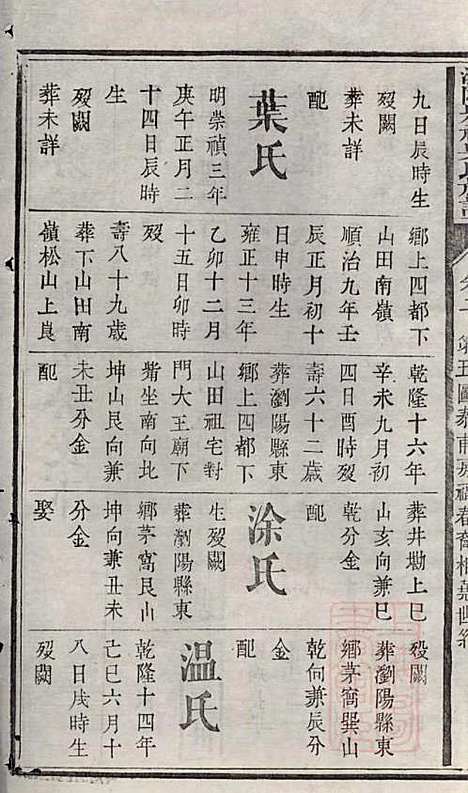 九日辰時生
歿闕
葬未詳
配
葉氏
明崇禎三年
庚午正月二
十四日辰時
生
歿闕
葬未詳
鄉上四都下
山田南嶺
順治九年壬
辰正月初十
日申時生
雍正十三年
乙卯十二月
十五日卯時
歿
壽八十九歲
葬下山田南
嶺松山上艮
乾隆十六年
辛未九月初
四日酉時歿
壽六十二歲
葬瀏陽縣東
鄉上四都下
山田祖宅對
門大王廟下
觜坐南向北
坤山艮向兼
未丑分金
配
葬井塝上巳
山亥向兼巳
乾分金
配
涂氏
生歿闕
葬瀏陽縣東
鄉茅窩艮山
坤向兼丑未
分金
娶
歿闕
葬瀏陽縣東
鄉茅窩巽山
乾向兼辰分
金
配
温氏
乾隆十四年
己巳六月十
八日戌時生
歿闕